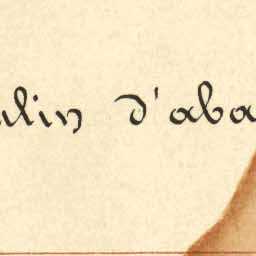 ulin d'aba